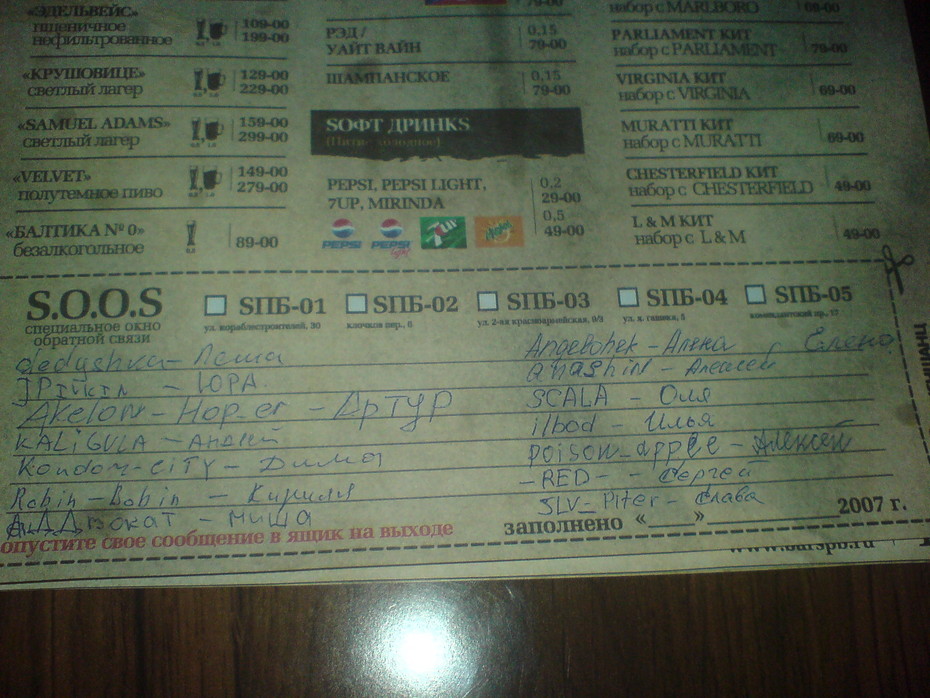 «ЭДЕЛЬВЕЙС»
пшеничное
нефильтрованное
109-00
199-00
«КРУШОВИЦЕ»
светлый лагер
129-00
229-00
«SAMUEL ADAMS»
светлый лагер
159-00
299-00
«VELVET»
полутемное пиво
149-00
279-00
«БАЛТИКА № 0»
безалкогольное
89-00
79-00
РЭД /
УАЙТ ВАЙН
0,15
79-00
ШАМПАНСКОЕ
0,15
79-00
SОФТ ДРИНКS
(Питие холодное)
PEPSI, PEPSI LIGHT,
7UP, MIRINDA
0,2
29-00
0,5
49-00
PEPSI PEPSI 7UP
набор с MARLBORO
69-00
PARLIAMENT КИТ
набор с PARLIAMENT
79-00
VIRGINIA КИТ
набор с VIRGINIA
69-00
MURATTI КИТ
набор с MURATTI
69-00
CHESTERFIELD КИТ
набор с CHESTERFIELD
49-00
L & M КИТ
набор с L & M
49-00
S.O.O.S
специальное окно
обратной связи
SПБ-01
ул. кораблестроителей, 30
SПБ-02
клочков пер., 6
SПБ-03
ул. 2-ая красноармейская,
SПБ-04
SПБ-05
комендантский пр., 17
dedushka - Леша
- ЮРА
Akelon-Hop_er - Артур
KALiGULA - Андрей
Kondom-CiTY - Дима
Robin-Bobin - Кирилл
- миша
Angelohek - Алена Елена
anashin - Алексей
SCALA - Оля
ilbod - Илья
poison_apple - Алексей
-RED- - Сергей
SLV_Piter - Слава
опустите свое сообщение в ящик на выходе
заполнено «___»__________ 2007 г.
www.barspb.ru